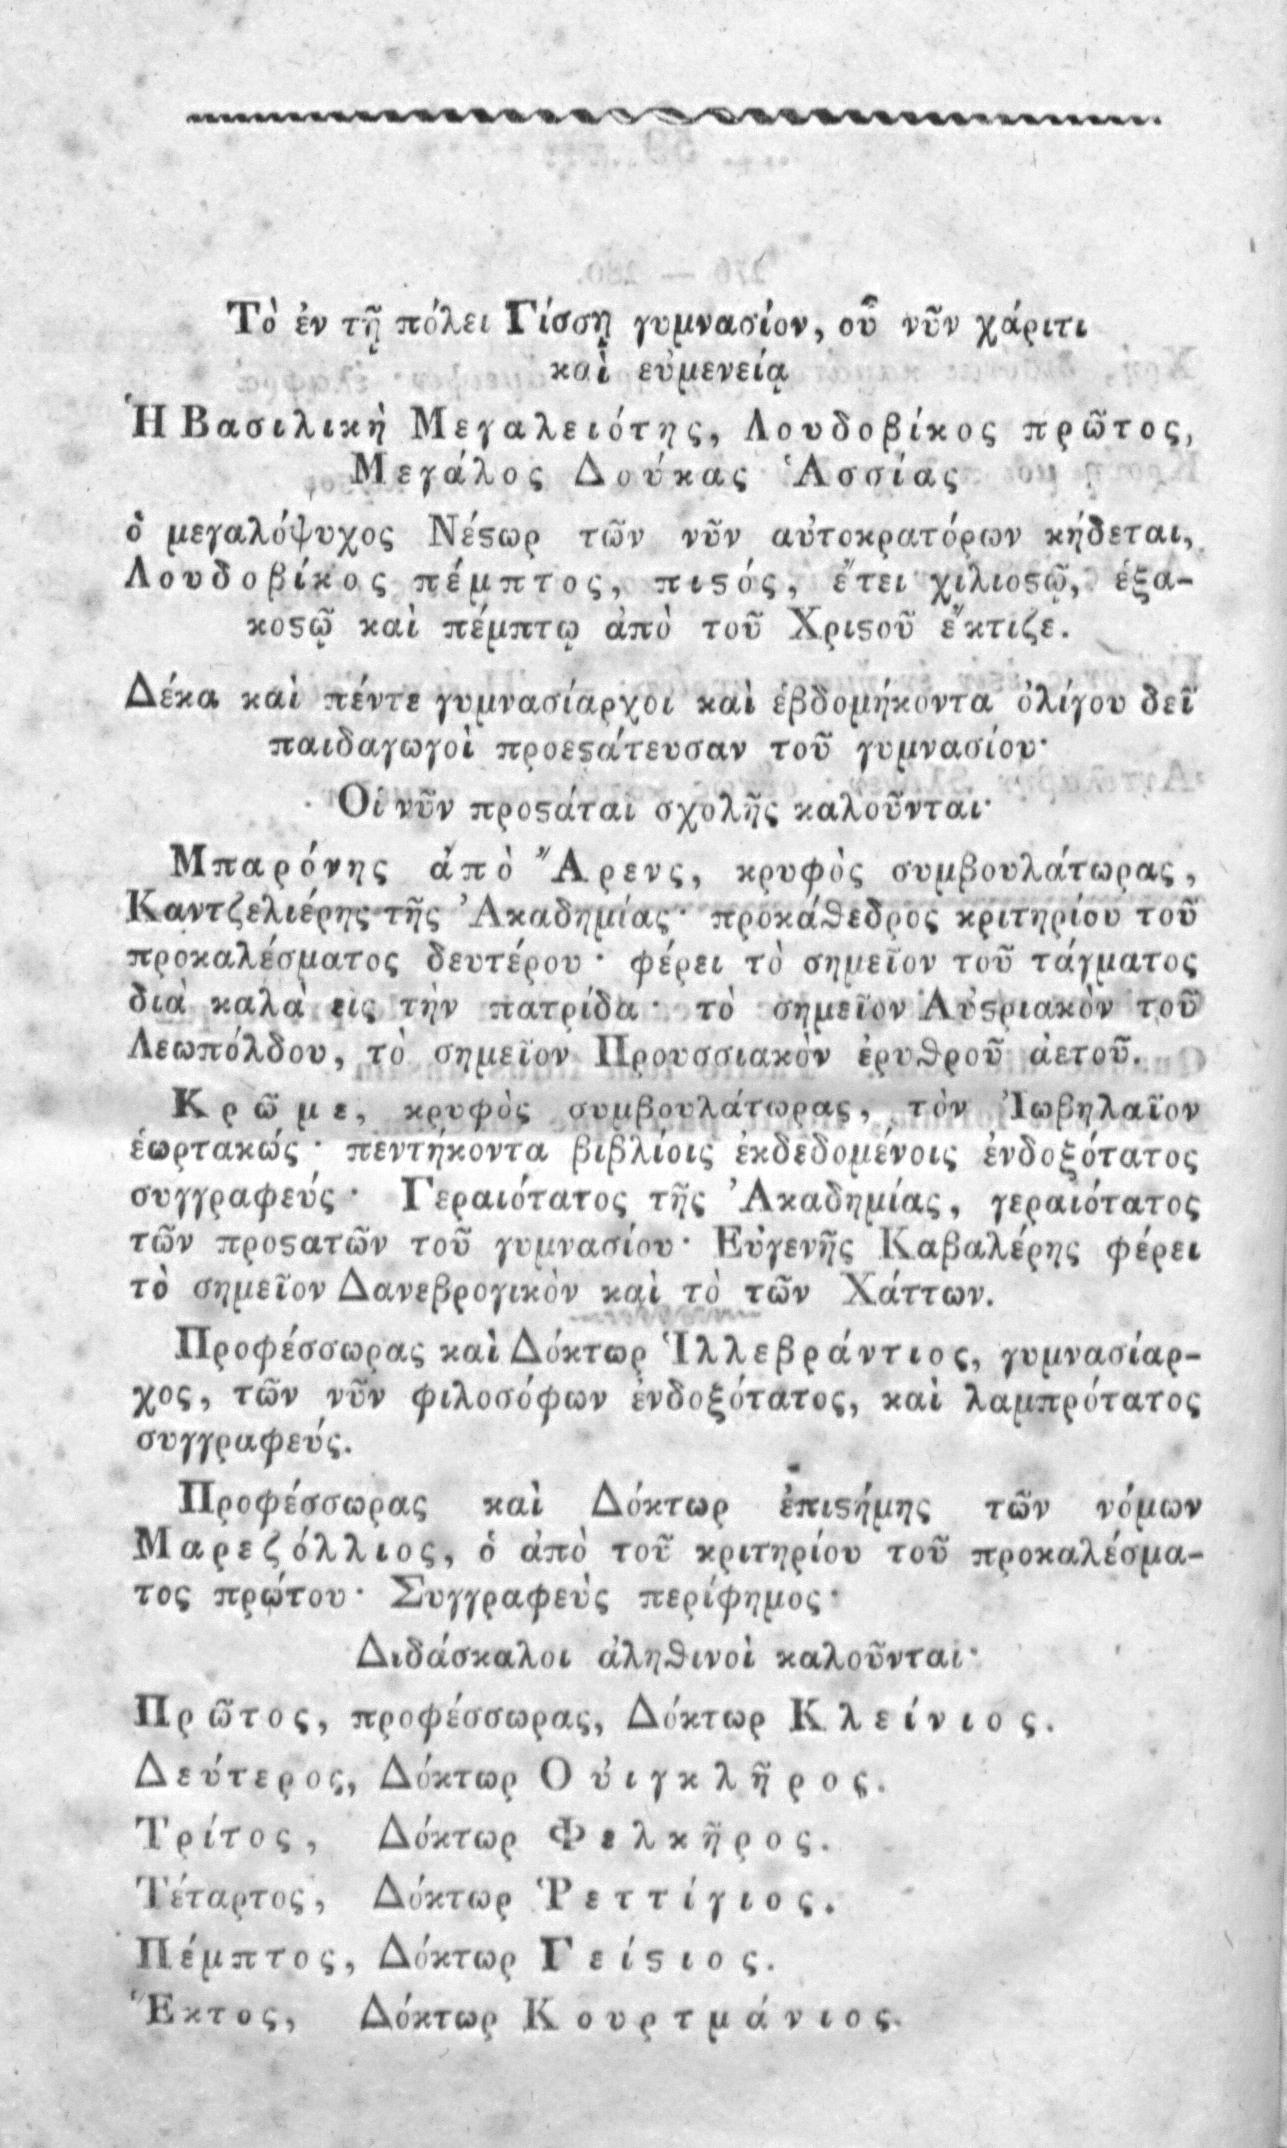 Τὸ ἐν τῇ πόλει Γίσσῃ γυμνασίον, οὗ νῦν χάριτι
καὶ εὐμενείᾳ
Ἡ Βασιλικὴ Μεγαλειότης, Λουδοβίκος πρῶτος,
Μεγάλος Δούκας Ἁσσίας
ὁ μεγαλόψυχος Νέϛωρ τῶν νῦν αὐτοκρατόρων κήδεται,
Λουδοβίκος πέμπτος, πιϛός, ἔτει χιλιοϛῷ, ἑξα-
κοϛῷ καὶ πέμπτῳ ἀπὸ τοῦ Χριϛοῦ ἔκτιζε.
Δέκα καὶ πέντε γυμνασίαρχοι καὶ ἑβδομήκοντα ὀλίγου δεῖ
παιδαγωγοὶ προεϛάτευσαν τοῦ γυμνασίου·
Οἱ νῦν προϛάται σχολῆς καλοῦνται·
Μπαρόνης ἀπὸ Ἄρενς, κρυφὸς συμβουλάτωρας,
Καντζελιέρης τῆς Ἀκαδημίας· προκάϑεδρος κριτηρίου τοῦ
προκαλέσματος δευτέρου· φέρει τὸ σημεῖον τοῦ τάγματος
διὰ καλὰ εἰς τὴν πατρίδα· τὸ σημεῖον Αὐϛριακὸν τοῦ
Λεωπόλδου, τὸ σημεῖον Προυσσιακὸν ἐρυϑροῦ ἀετοῦ.
Κρῶμε, κρυφὸς συμβουλάτωρας, τὸν Ἰωβηλαῖον
ἑωρτακώς· πεντήκοντα βιβλίοις ἐκδεδομένοις ἐνδοξότατος
συγγραφεύς· Γεραιότατος τῆς Ἀκαδημίας, γεραιότατος
τῶν προϛατῶν τοῦ γυμνασίου· Εὐγενῆς Καβαλέρης φέρει
τὸ σημεῖον Δανεβρογικὸν καὶ τὸ τῶν Χάττων.
Προφέσσωρας καὶ Δόκτωρ Ἱλλεβράντιος, γυμνασίαρ-
χος, τῶν νῦν φιλοσόφων ἐνδοξότατος, καὶ λαμπρότατος
συγγραφεύς.
Προφέσσωρας καὶ Δόκτωρ ἐπιϛήμης τῶν νόμων
Μαρεζόλλιος, ὁ ἀπὸ τοῦ κριτηρίου τοῦ προκαλέσμα-
τος πρώτου· Συγγραφεὺς περίφημος·
Διδάσκαλοι ἀληϑινοὶ καλοῦνται·
Πρῶτος, προφέσσωρας, Δόκτωρ Κλείνιος.
Δεύτερος, Δόκτωρ Οὐιγκλῆρος.
Τρίτος, Δόκτωρ Φελκῆρος.
Τέταρτος, Δόκτωρ Ῥεττίγιος.
Πέμπτος, Δόκτωρ Γείϛιος.
Ἕκτος, Δόκτωρ Κουρτμάνιος.